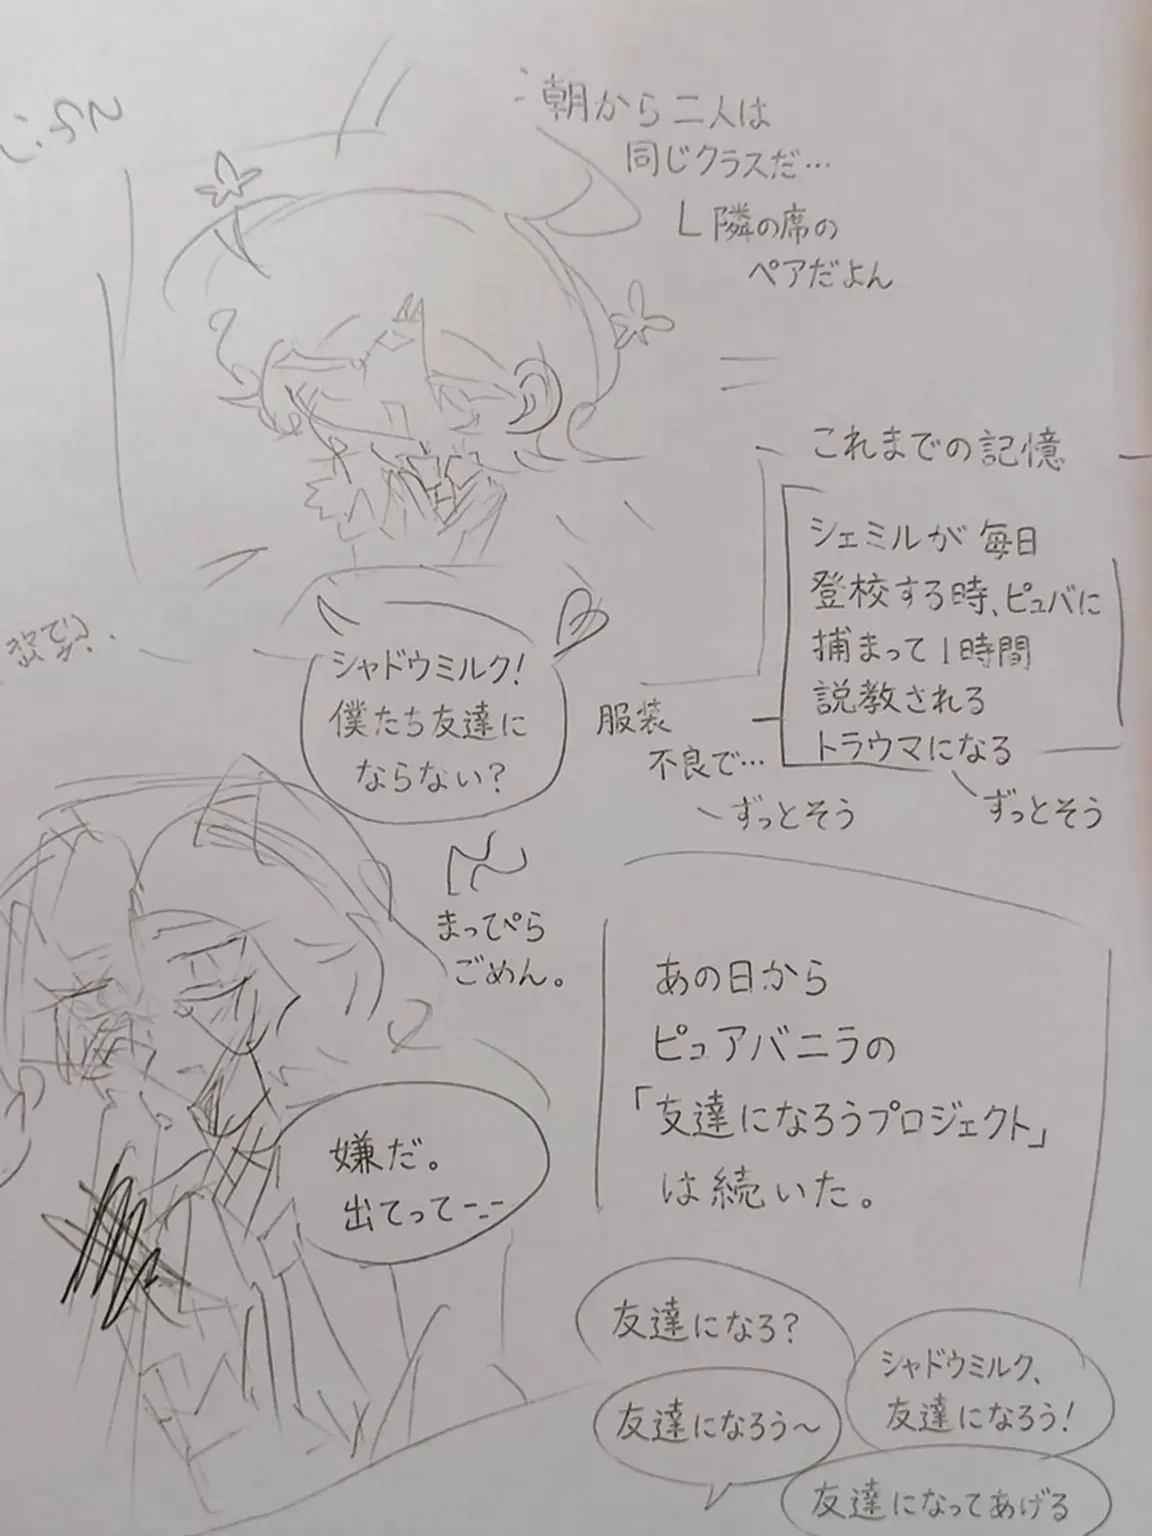 朝から二人は
同じクラスだ…
隣の席の
ペアだよん
これまでの記憶
シェミルが毎日
登校する時、ピュバに
捕まって1時間
説教される
トラウマになる
ずっとそう
服装
不良で…
ずっとそう
シャドウミルク!
僕たち友達に
ならない?
まってぺら
ごめん。
嫌だ。
出てって---
あの日から
ピュアバニラの
「友達になろうプロジェクト」
は続いた。
友達になろ?
シャドウミルク、
友達になろう!
友達になろう〜
友達になってあげる